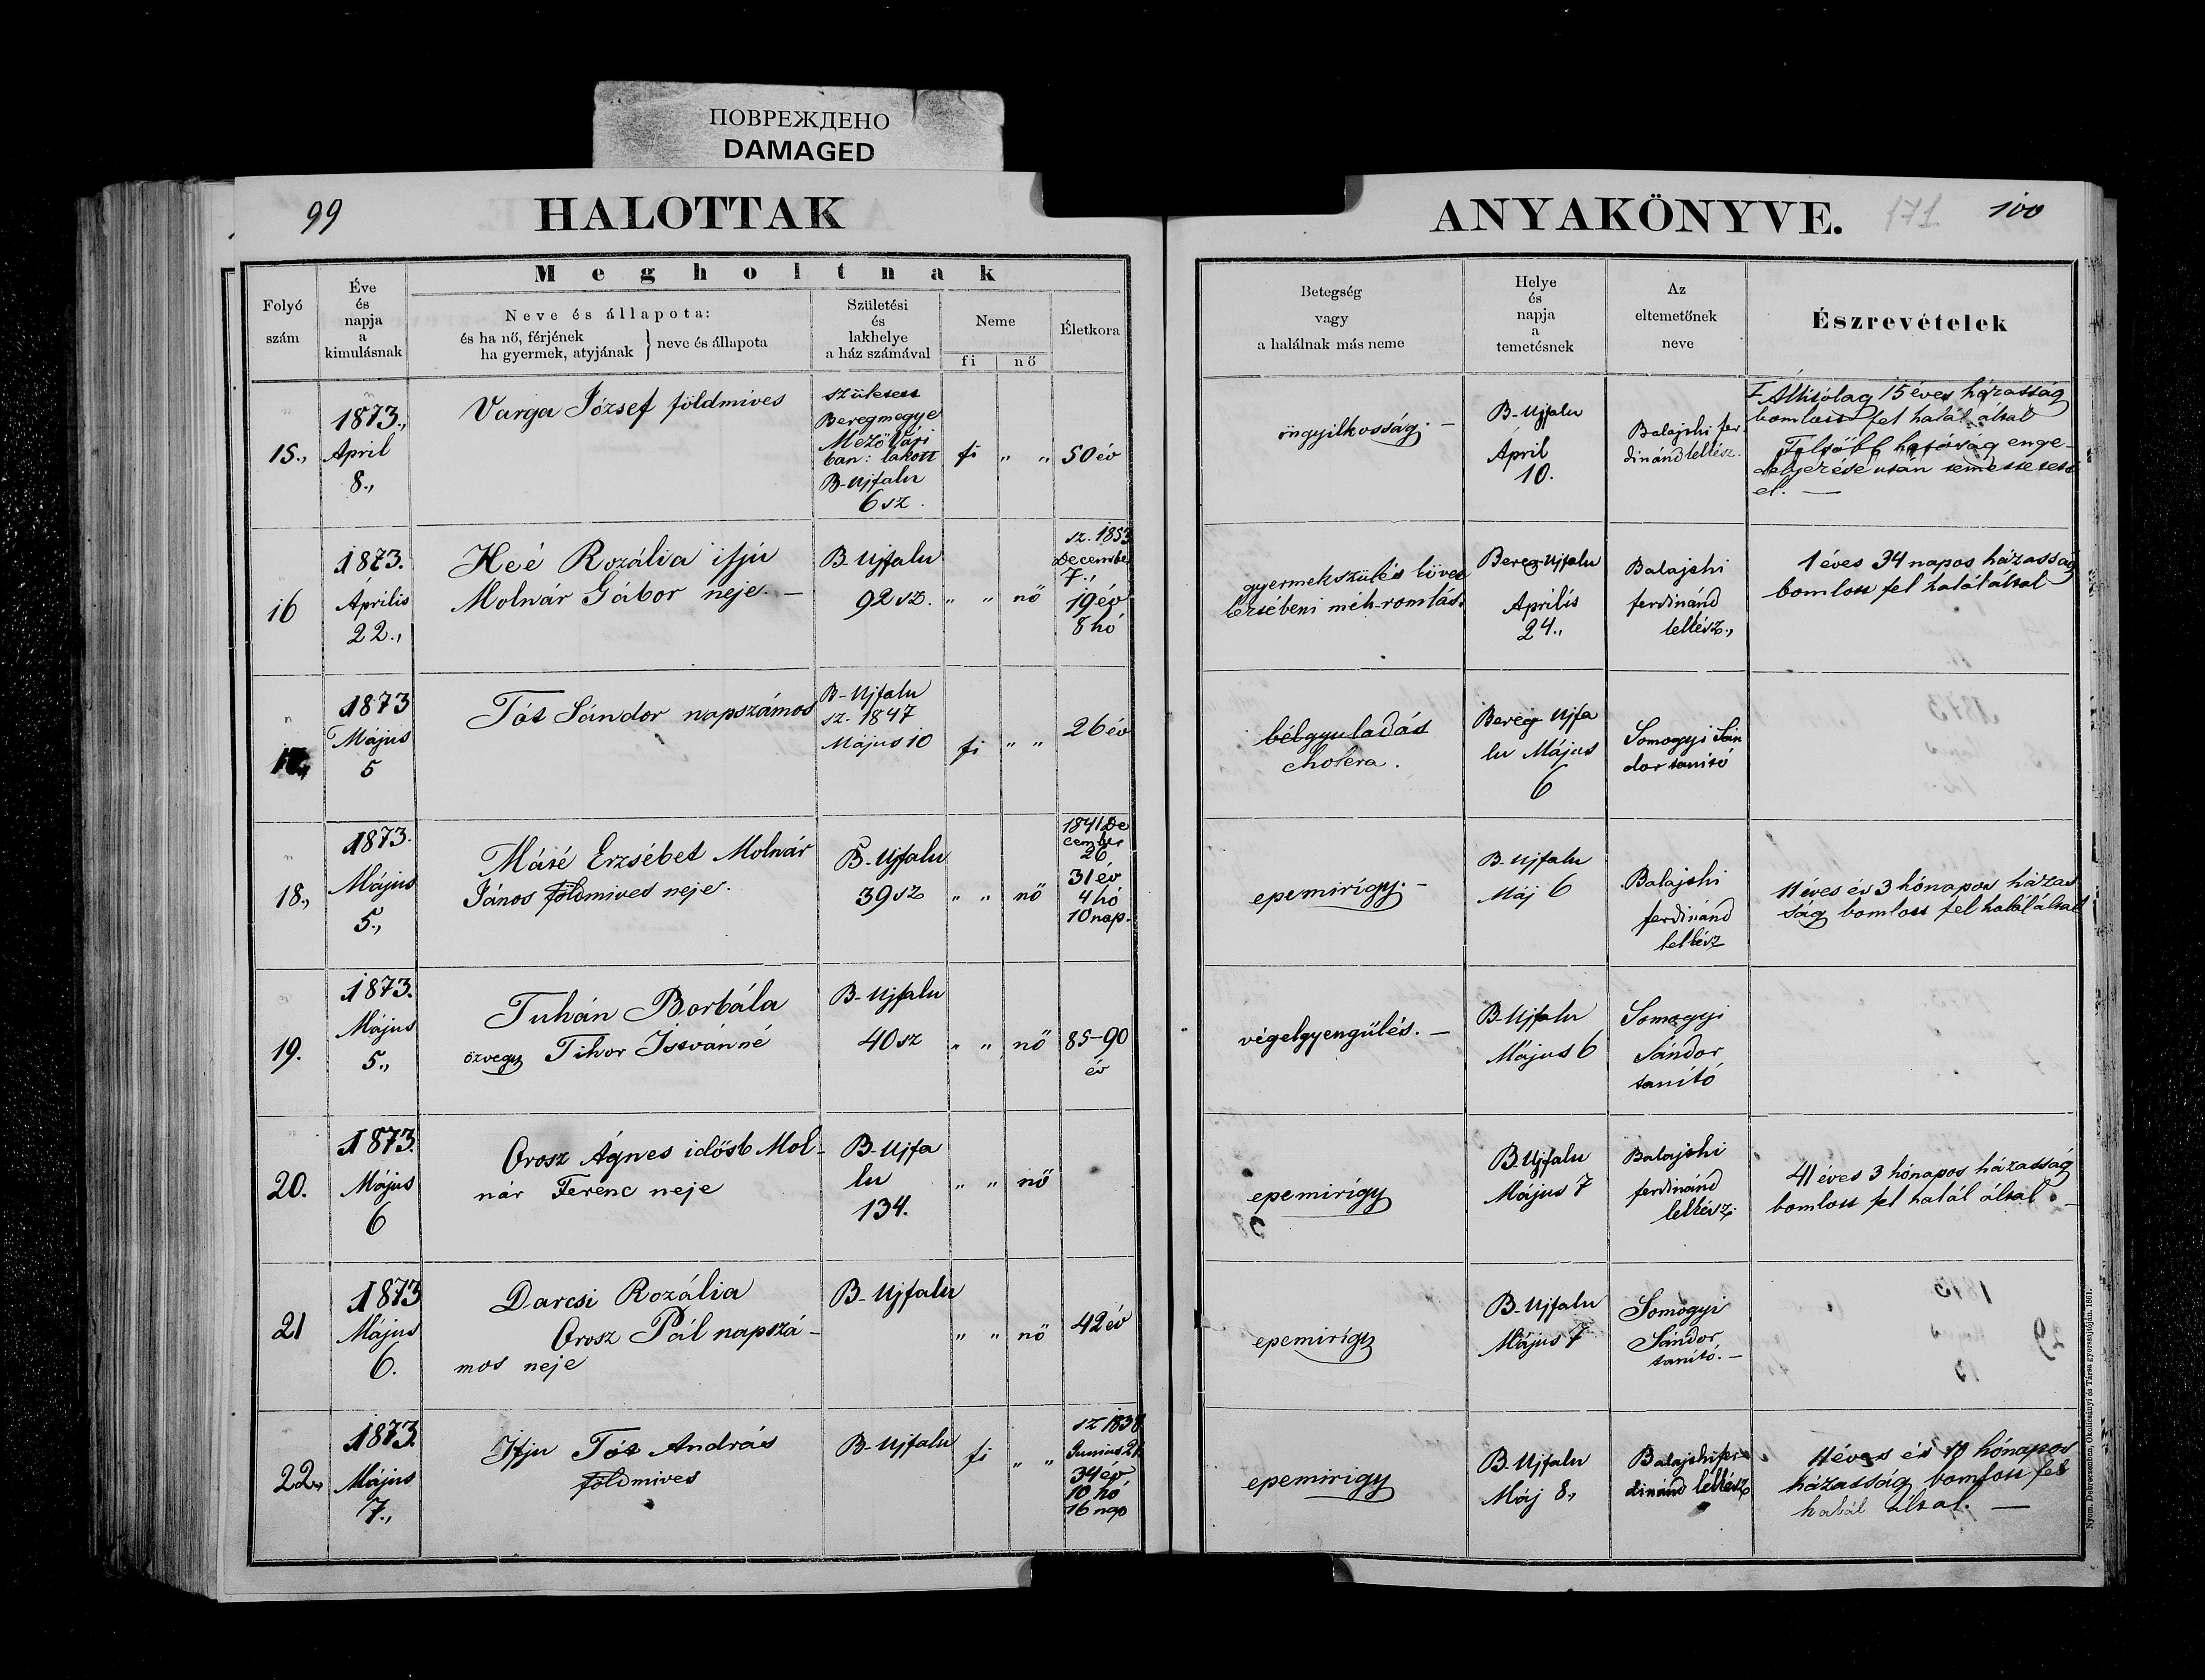 ПОВРЕЖДЕНО
DAMAGED
99
HALOTTAK
Folyó
szám
Éve
és
napja
a
kimulásnak
Megholtnak
Neve és állapota:
és ha nő, férjének
ha gyermek, atyjának } neve és állapota
Születési
és
lakhelye
a ház számával
Neme
fi
nő
Életkora
15.,
1873.,
April
8.,
Varga József földmives
születess
Beregmegye
Mező Vári
ban: lakott
B-Ujfalu
6 sz.
fi
" "
50 év
16
1873.
Április
22.,
Heé Rozália ifju
Molnár Gábor neje. —
B-Ujfalu
92 sz.
" "
nő
sz. 1853
December
7.,
19 év
8 hó
17.,
1873
Május
5
Tót Sándor napszámos
B-Ujfalu
sz. 1847
Május 10
fi
" "
26 év
18.,
1873.
Május
5.,
Máté Erzsébet Molnár
János földmives neje.
B-Ujfalu
39 sz
" "
nő
1841 De
cember
26
31 év
4 hó
10 nap.
19.
1873.
Május
5.,
Tuhán Borbála
özvegy Tihor Istvánné
B-Ujfalu
40 sz
" "
nő
85-90
év
20.
1873.
Május
6
Orosz Ágnes idősb Mol-
nár Ferenc neje
B-Ujfa
lu
134.
" "
nő
21
1873
Május
6.
Darcsi Rozália
Orosz Pál napszá-
mos neje
B-Ujfalu
" "
nő
42 év
22.,
1873.
Május
7.,
Ifju Tót András
földmives
B-Ujfalu
fi
" "
sz 1838
Junius 21
34 év
10 hó
16 nap
ANYAKÖNYVE.
171
100
Betegség
vagy
a halálnak más neme
Helye
és
napja
a
temetésnek
Az
eltemetőnek
neve
Észrevételek
öngyilkosság. —
B-Ujfalu
Április
10.
Balajshi fer
dinánd lelkész.
Állitólag 15 éves házasság
bomlott fel halál által
Felsőbb hatóság enge-
delyezése után temettetett
el. —
gyermekszülés követ
keztébeni méh-romlás.
Bereg-Ujfalu
Április
24.,
Balajshi
ferdinánd
lelkész.,
1 éves 34 napos házasság
bomlott fel halál által
bélgyuladás
cholera.
Bereg Ujfa
lu Május
6
Somogyi Sán
dor tanitó
epemirígy. —
B-Ujfalu
Máj 6
Balajshi
ferdinánd
lelkész
11 éves és 3 hónapos házas
ság bomlott fel halál által
végelgyengülés. —
B-Ujfalu
Május 6
Somogyi
Sándor
tanító
epemirígy
B-Ujfalu
Május 7
Balajshi
ferdinánd
lelkész.
41 éves 3 hónapos házasság
bomlott fel halál által. —
epemirígy
B-Ujfalu
Május 7
Somogyi
Sándor
tanító. —
epemirigy
B-Ujfalu
Máj 8.,
Balajshi fer
dinánd lelkész
11 éves és 10 hónapos
házasság bomlott fel
halál által. —
Nyom. Debreczenben, Okolicsányi és Társa gyorssajtóján. 1861.